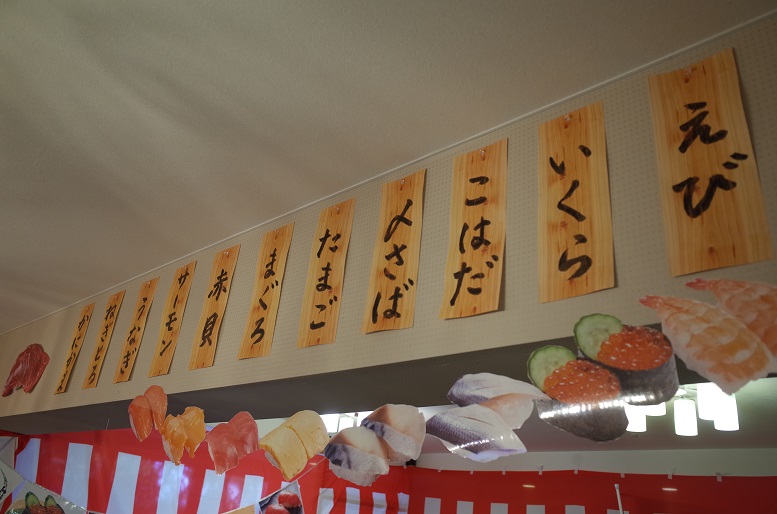 えび
いくら
こはだ
〆さば
たまご
まぐろ
赤貝
サーモン
うなぎ
ねぎとろ